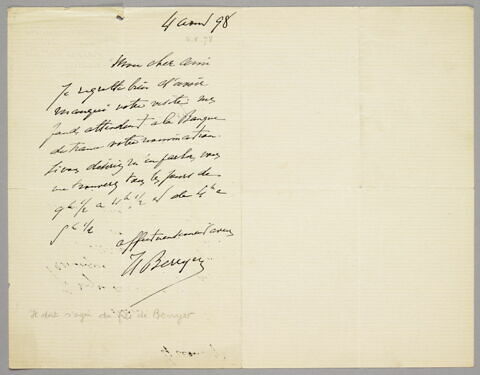 4 aout 98
4.8.98
Mon cher ami
Je regrette bien d'avoir
manqué votre visite
attendant a la Banque
de france votre nomination
Si vous désirez m'en parler, vous
me trouverez tous les jours de
9h 1/2 a 11h 1/2 et de 4h a
5h 1/2
affectueusement
Il doit s'agir du de